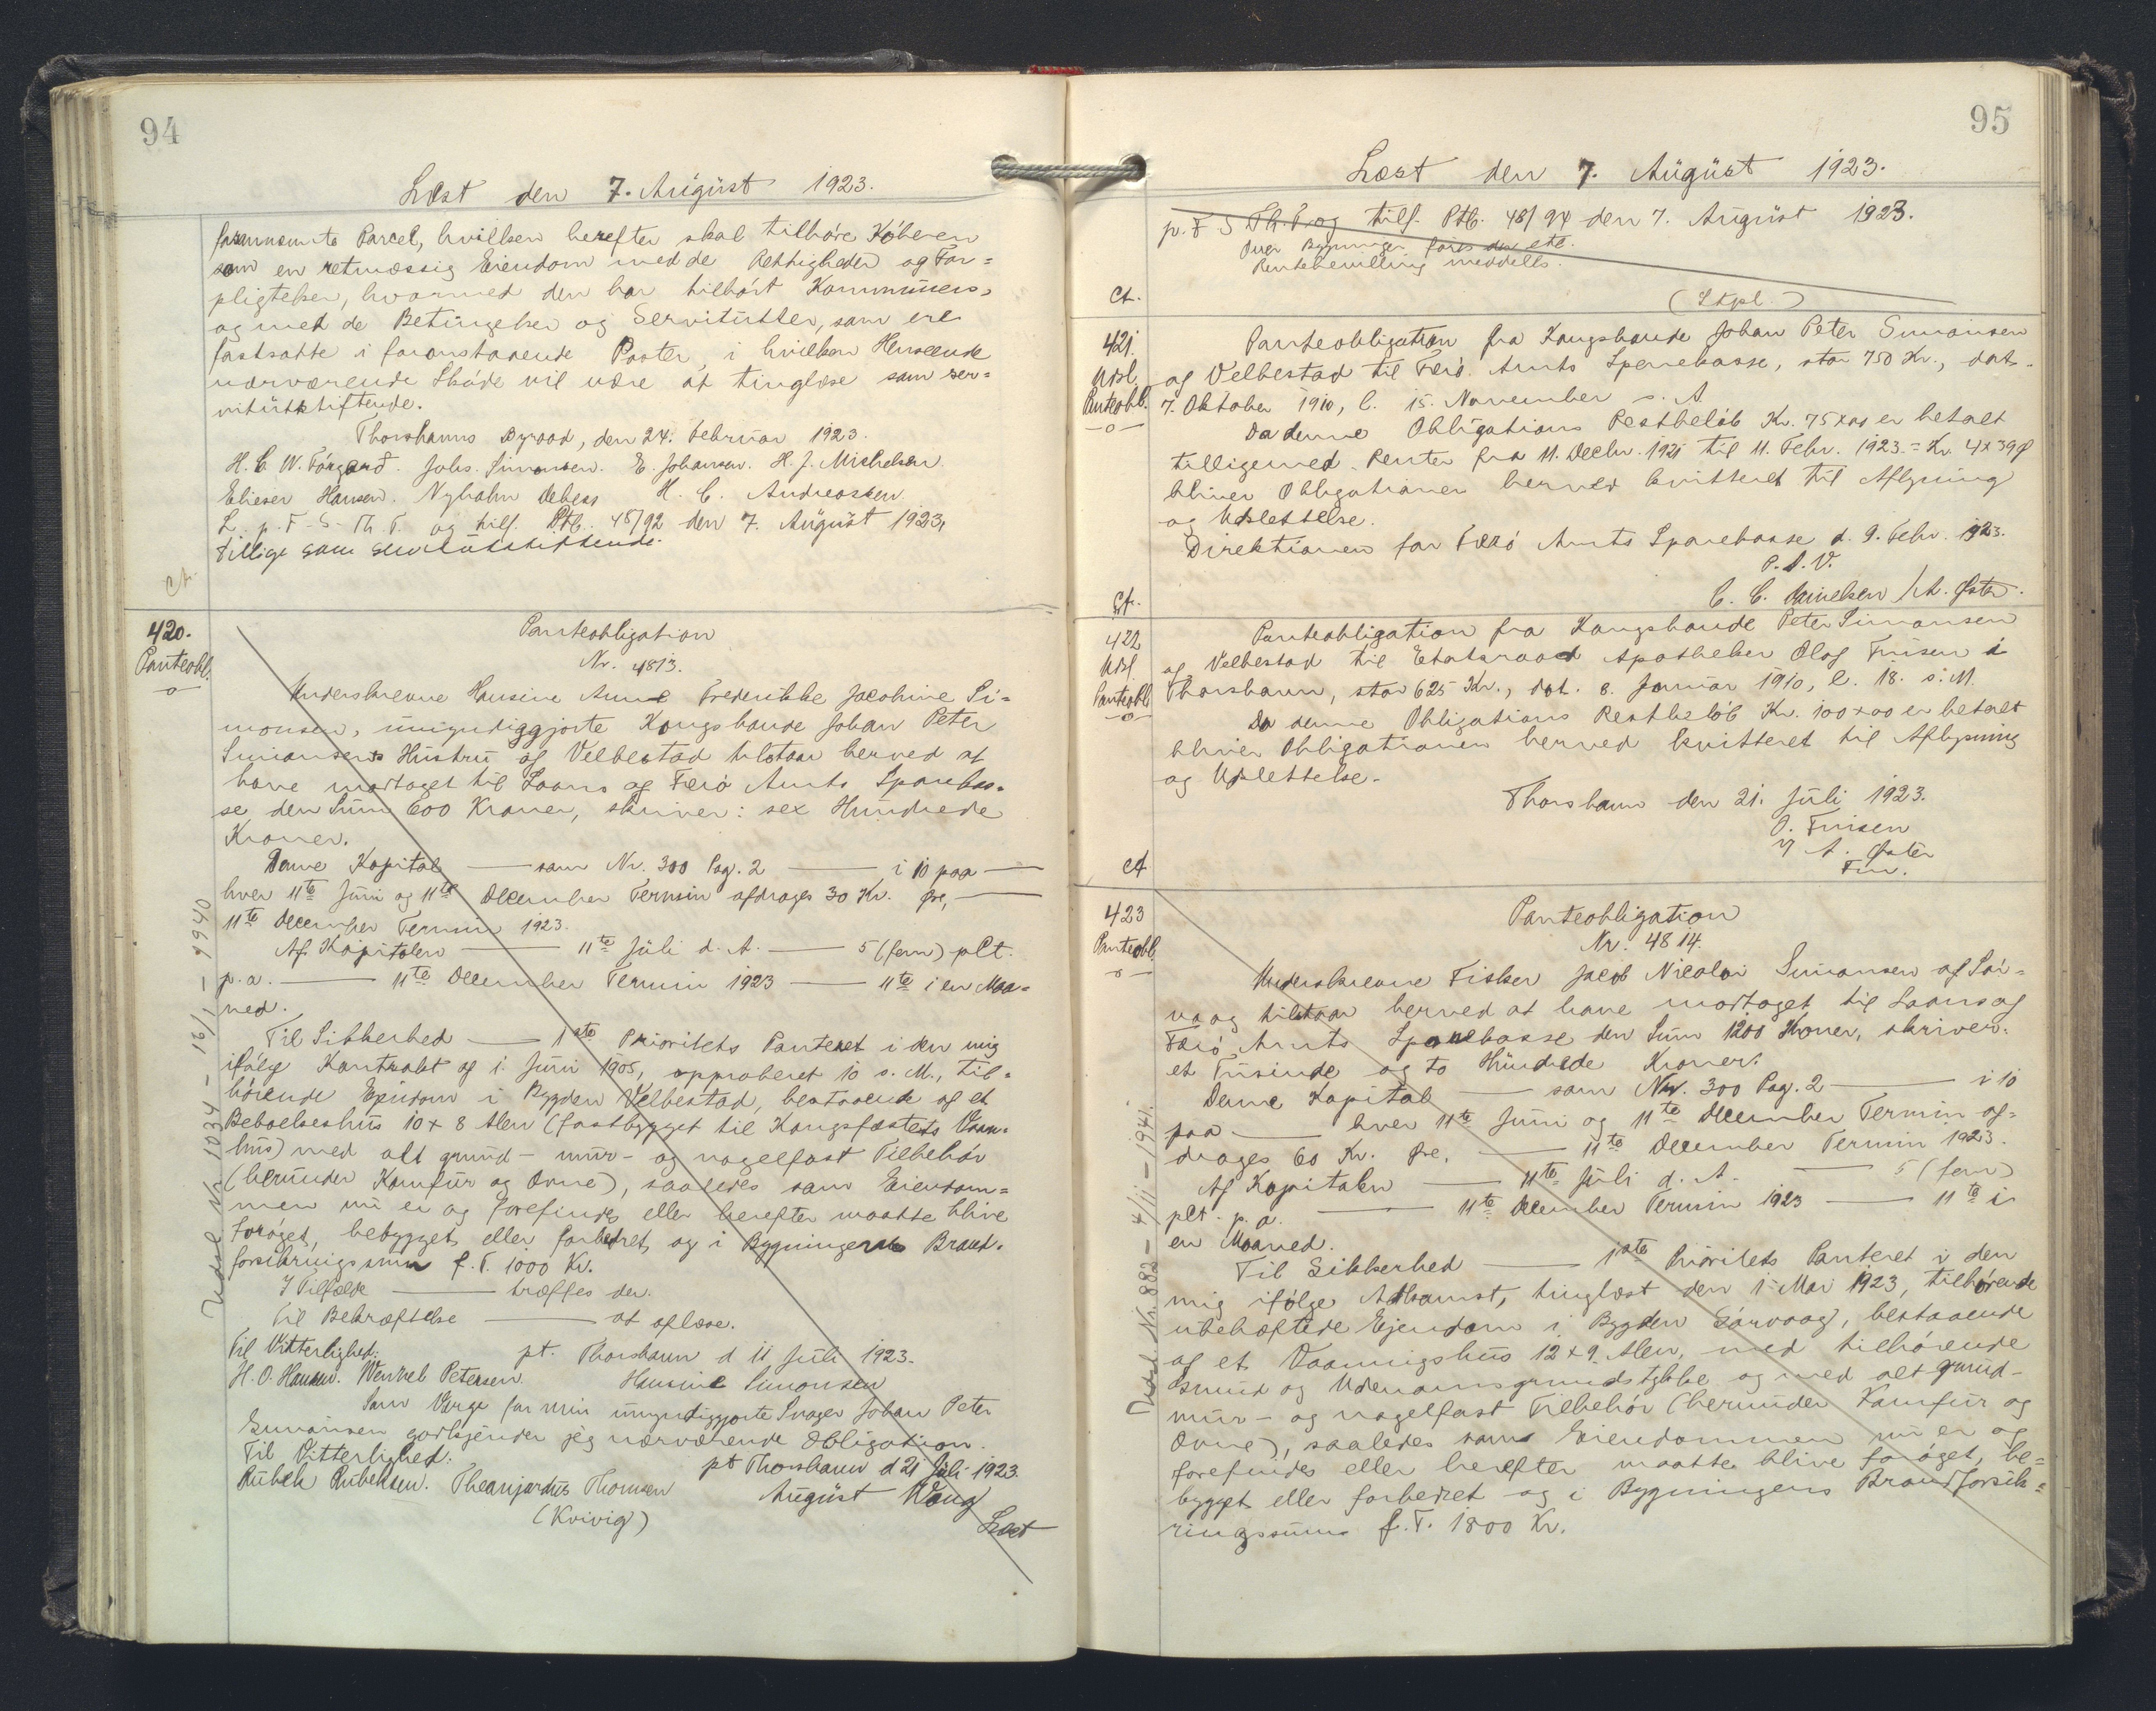 94
Læst den 7. August 1923.
forannævnte Parcel, hvilken herefter skal tilhöre Köberen
som en retmæssig Eiendom med de Rettigheder og For=
pligtelser, hvormed den har tilhört Kommunen,
og med de Betingelser og Servitutter, som ere
fastsatte i foranstaaende Poster, i hvilken Henseende
nærværende Sköde vil være at tinglæse som ser=
vitutstiftende.
Thorshavns Byraad, den 24. Februar 1923.
H. C. W. Törgarð. Johs. Simonsen. E. Johansen. H. J. Michelsen.
Elieser Hansen. Nyholm Debess H. C. Andreassen.
L. p. F-S. Th T. og tilf. Ptb. 48/92 den 7. August 1923,
tillige som servitutstiftende.
Ct.
420.
Panteobl.
Panteobligation
Nr. 4813.
Underskrevne Hansine Anne Frederikke Jacobine Si=
monsen, umyndiggjorte Kongsbonde Johan Peter
Simonsens Hustru af Velbestad tilstaar herved at
have modtaget til Laans af Færö Amts Sparekas=
se den Sum 600 Kroner, skriver: sex Hundrede
Kroner.
Denne Kapital — som Nr. 300 Pag. 2 — i 10 paa —
hver 11te Juni og 11te December Termin afdrages 30 Kr. Öre, —
11te December Termin 1923.
Af Kapitalen — 11te Juli d. A. — 5 (fem) pCt.
p. a. — 11te December Termin 1923 — 11te i en Maa=
ned.
Til Sikkerhed — 1ste Prioritets Panteret i den mig
ifölge Kontrakt af 1. Juni 1905, approberet 10 s. M., til=
hörende Ejendom i Bygden Velbestad, bestaaende af et
Beboelseshus 10 x 8 Alen (fastbygget til Kongsfæstets Vaan=
hus) med alt grund- mur- og nagelfast Tilbehör
(herunder Komfur og Ovne), saaledes som Eiendom=
men nu er og forefindes eller herefter maatte blive
foröget, bebygget eller forbedret og i Bygningernes Brand=
forsikringssum f. T. 1000 Kr.
I Tilfælde — træffes der.
Til Bekræftelse — at aflæse.
Til Vitterlighed: pt. Thorshavn d 11 Juli 1923.
H. O. Hansen. Wenzel Petersen. Hansine Simonsen
Som Værge for min umyndiggjorte Svager Johan Peter
Simonsen godkjender jeg nærværende Obligation.
Til Vitterlighed: pt Thorshavn d 21 Juli 1923.
Rubek Rubeksen. Theanjardus Thomsen August Wang
(Kvivig)
Læst
Udsl. Nr. 1034 - 16/1 - 1940
95
Læst den 7. August 1923.
p. F S Th. T. og tilf. Ptb. 48/94 den 7. August 1923.
Over Bygninger föres der etc.
Rentebevilling meddelt.
(Stpl.)
Ct.
421.
Udsl.
Panteobl.
Panteobligation fra Kongsbonde Johan Peter Simonsen
af Velbestad til Færö Amts Sparekasse, stor 750 Kr., dat.
7. Oktober 1910, l. 15. November s. A
Da denne Obligations Restbelöb Kr. 75x00 er betalt
tilligemed Renter fra 11. Decbr. 1921 til 11. Febr. 1923 = Kr. 4x39 Ø
bliver Obligationen herved kvitteret til Aflysning
og Udslettelse.
Direktionen for Færö Amts Sparekasse d. 9. Febr. 1923.
P. D. V.
C. C. Danielsen / A. Öster.
Ct.
422
Udsl.
Panteobl.
Panteobligation fra Kongsbonde Peter Simonsen
af Velbestad til Etatsraad Apotheker Olaf Finsen i
Thorshavn, stor 625 Kr., dat. 8. Januar 1910, l. 18. s. M.
Da denne Obligations Restbelöb Kr. 100x00 er betalt
bliver Obligationen herved kvitteret til Aflysning
og Udslettelse.
Thorshavn den 21. Juli 1923.
O. Finsen
A. Öster
Fm.
Ct
423
Panteobl.
Panteobligation
Nr. 4814.
Underskrevne Fisker Jacob Nicolai Simonsen af Sör=
vaag tilstaar herved at have modtaget til Laans af
Færö Amts Sparekasse den Sum 1200 Kroner, skriver:
et Tusinde og to Hundrede Kroner.
Denne Kapital — som Nr. 300 Pag. 2 — i 10
paa — hver 11te Juni og 11te December Termin af=
drages 60 Kr. Öre, — 11te December Termin 1923.
Af Kapitalen — 11te Juli d. A. — 5 (fem)
pCt. p. a. — 11te December Termin 1923 — 11te i
en Maaned.
Til Sikkerhed — 1ste Prioritets Panteret i den
mig ifölge Adkomst, tinglæst den 1 Mai 1923, tilhörende
ubehæftede Ejendom i Bygden Sörvaag, bestaaende
af et Vaaningshus 12 x 9 Alen, med tilhörende
Grund og Udenomsgrundstykke og med alt grund-
mur- og nagelfast Tilbehör (herunder Komfur og
Ovne), saaledes som Eiendommen nu er og
forefindes eller herefter maatte blive foröget, be=
bygget eller forbedret og i Bygningens Brandforsik=
ringssum f. T. 1800 Kr.
Udsl. Nr. 882 - 4/11 - 1941.